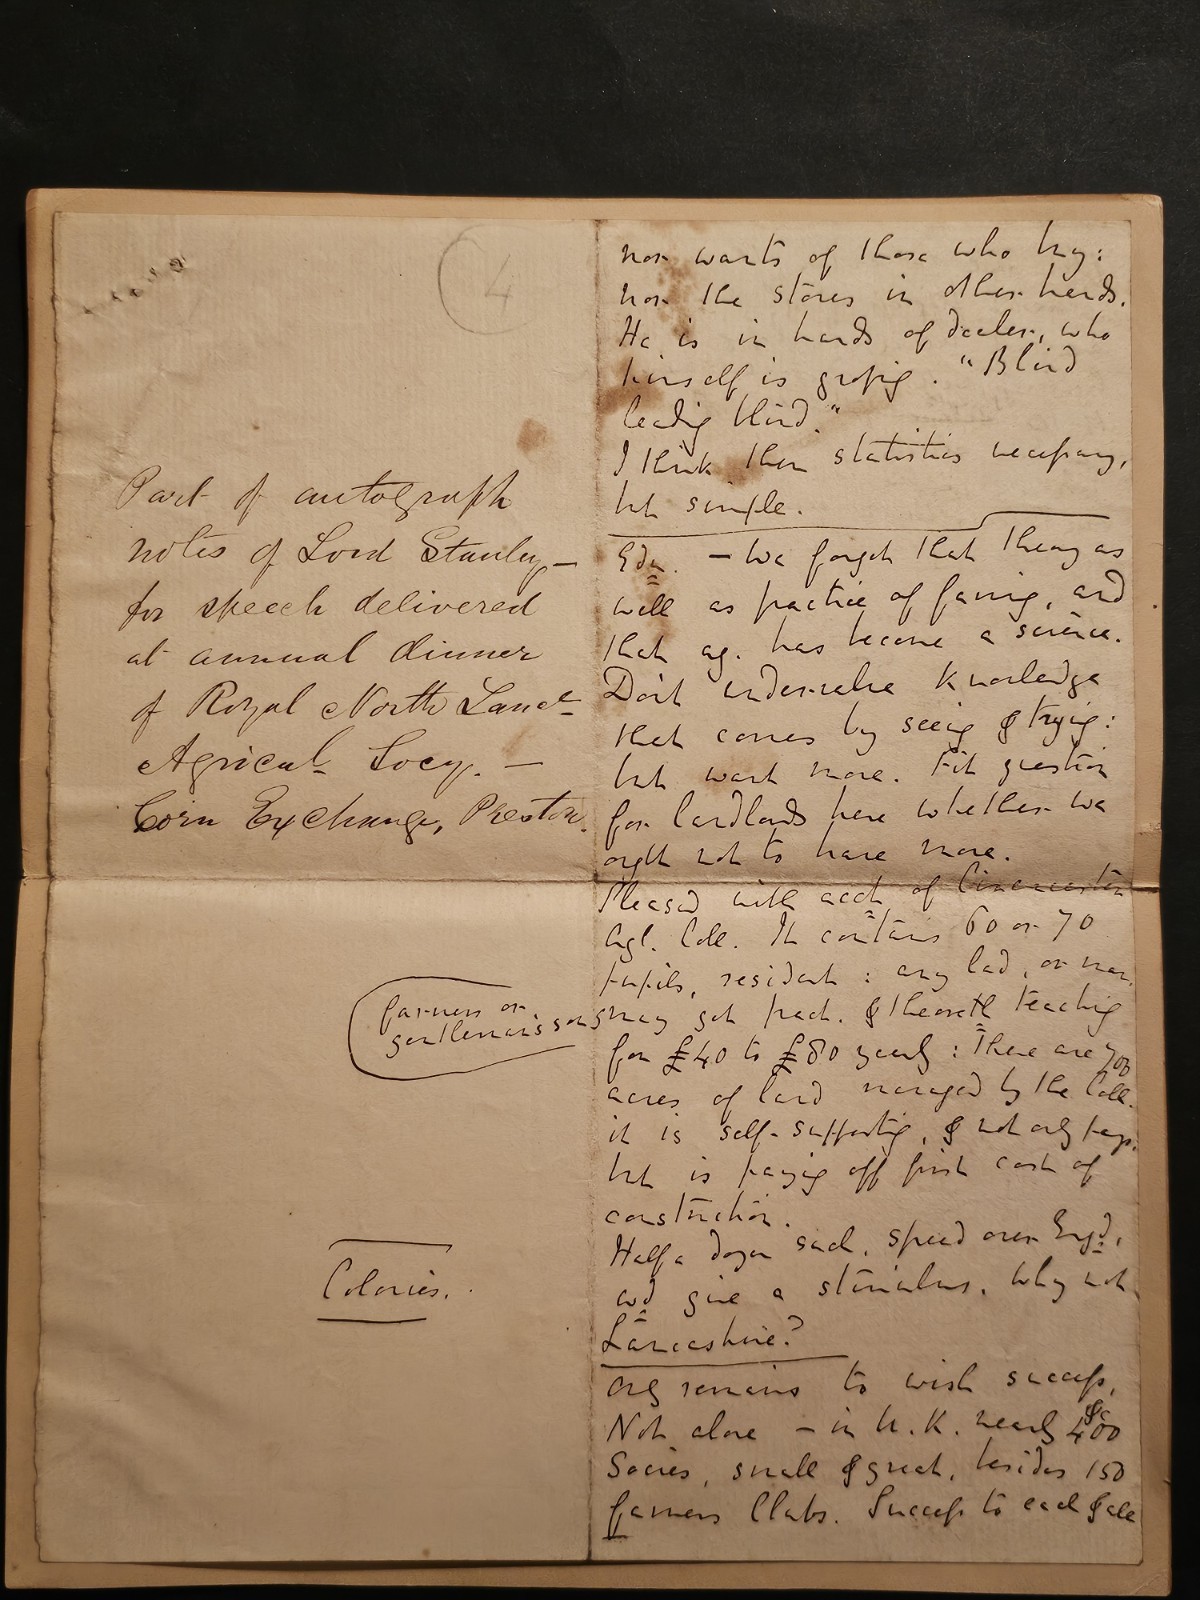 4
Part of autograph
notes of Lord Stanley—
for speech delivered
at annual dinner
of Royal North Lanc—
Agricul. Socy. —
Corn Exchange, Preston.
farmers or
gentleman's sons
Colonies.
nor wants of those who buy:
nor the stores in other hands.
He is in hands of dealer, who
himself is groping. "Blind
leading blind."
I think then statistics necessary,
but simple.
Edn. — We forget that theory as
well as practice of farming, and
that ag. has become a science.
Don't undervalue knowledge
that comes by seeing & trying:
but want more. Fit question
for landlords here whether we
ought not to have more.
Pleased with acct of Cirencester
Agl. Coll. It contains 60 or 70
pupils, resident: any lad, or man,
may get pract. & theoretl teaching
for £40 to £80 yearly: There are 700
acres of land managed by the Coll.
it is self-supporting, & not only pays,
but is paying off first cost of
construction.
Half a dozen such, spread over Engd,
wd give a stimulus. Why not
Lancashire?
Only remains to wish success,
Not alone — in U.K. nearly 400
Socies, small & great, besides 150
farmers Clubs. Success to each & all